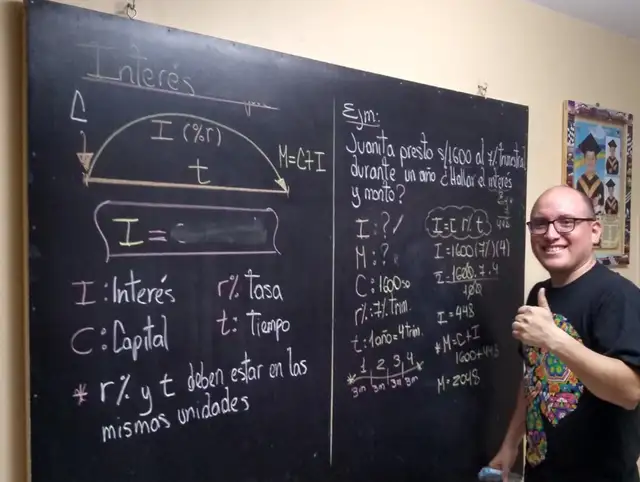 Interés
C
I (%r)
t
M=C+I
I =
I: Interés
r%: Tasa
C: Capital
t: Tiempo
* r% y t deben estar en las
mismas unidades
Ejm:
Juanita presto s/1600 al 7% trimestral
durante un año ¿Hallar el interés
y monto?
I: ? ✓
M: ?
C: 1600
r%: 7% Trim.
t: 1año = 4 trim.
1 2 3 4
3m 3m 3m 3m
I=C r% t
I=1600(7%)(4)
I=1600.7.4
100
I=448
* M=C+I
1600+448
M=2048